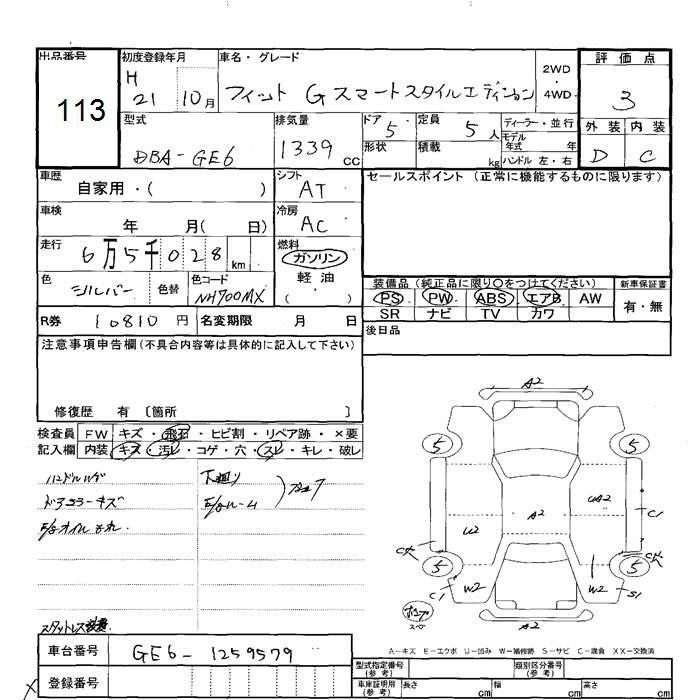 出品番号 初度登録年月 車名・グレード 2WD・4WD 評価点
113 H 21 10月 フィット G スマートスタイルエディション 3
型式 排気量 ドア 5 定員 5人 ディーラー・並行 外装 内装
DBA-GE6 1339cc 形状 積載 kg モデル年式 年 D C
ハンドル 左・右
車歴 自家用・( ) シフト AT セールスポイント (正常に機能するものに限ります)
車検 年 月( 日) 冷房 AC
走行 6万5千028km 燃料 ガソリン
軽油
( )
色 シルバー 色替 色コード NH700MX
装備品 (純正品に限り○をつけてください) 新車保証書
PS PW ABS エアB AW 有・無
SR ナビ TV カワ
R券 10810円 名変期限 月 日 後日品
注意事項申告欄(不具合内容等は具体的に記入して下さい)
修復歴 有 〔箇所 〕
検査員 FW キズ・飛石・ヒビ割・リペア跡・×要
記入欄 内装 キズ・汚レ・コゲ・穴・スレ・キレ・破レ
ドアミラーキズ
E/gオイルもれ
下廻り
スタットレス装着
A2
5 5
U2 A2 UA2 C1
5 5
C1 W2 W2 S1
A2
スペ
A-キズ E-エクボ U-凹み W-補修跡 S-サビ C-腐食 XX-交換済
車台番号 GE6-1259579
登録番号
型式指定番号 (参考) 類別区分番号 (参考)
車庫証明用 (参考) 長さ cm 幅 cm 高さ cm